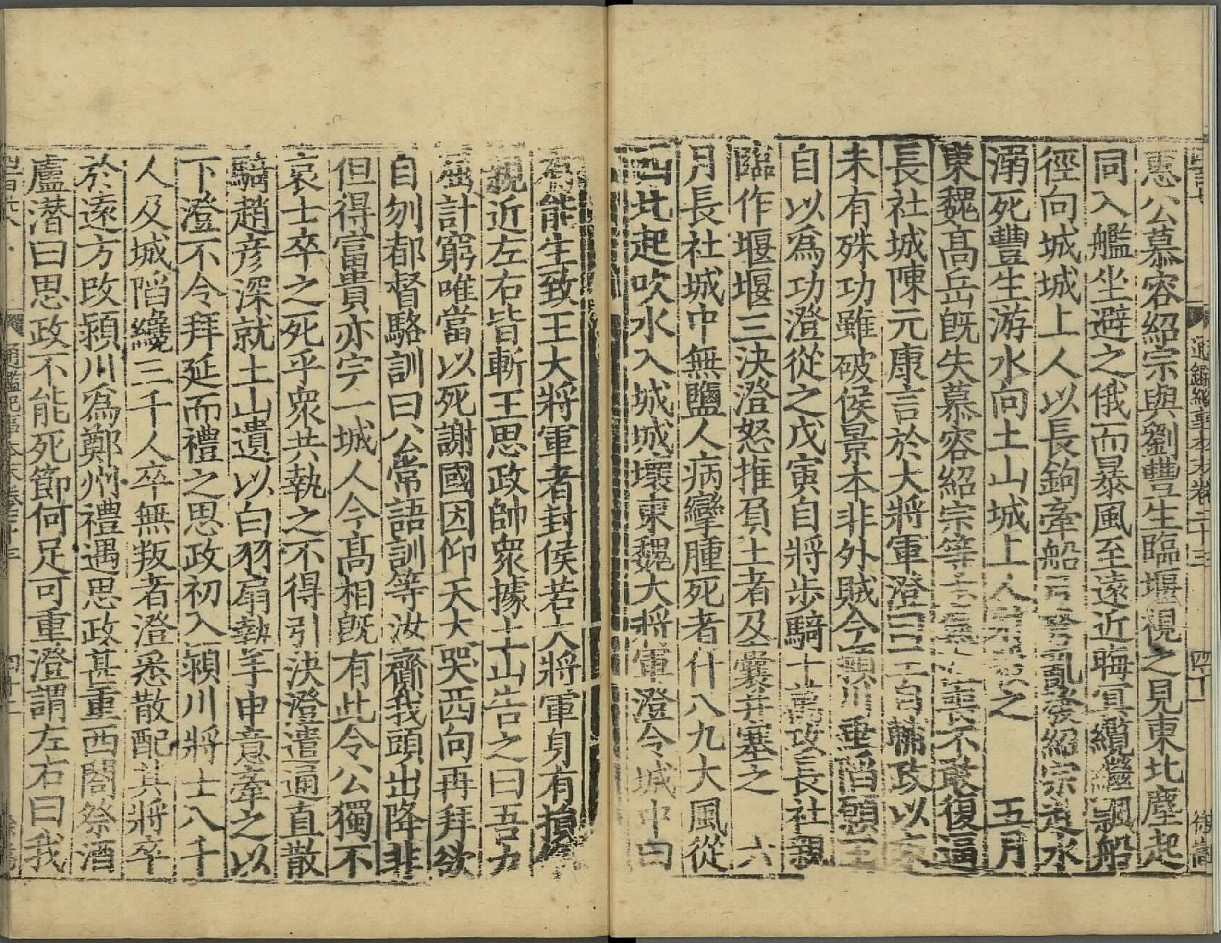 惠公慕容紹宗與劉豐生臨堰視之見東北塵起
同入艦坐避之俄而暴風至遠近晦冥纜飄船
徑向城城上人以長鉤牽船弩亂發紹宗水
溺死豐生游水向土山城上人之 五月
東魏高岳旣失慕容紹宗等不敢復逼
長社城陳元康言於大將軍澄曰王自輔政以來
未有殊功雖破侯景本非外賊今潁川垂陷願王
自以爲功澄從之戊寅自將步騎十萬攻長社親
臨作堰堰三決澄怒推負土者及囊幷塞之 六
月長社城中無鹽人病攣腫死者什八九大風從
西北起吹水入城城壞東魏大將軍澄令城中曰
有能生致王大將軍者封侯若大將軍身有損傷
親近左右皆斬王思政帥衆據土山告之曰吾力
屈計窮唯當以死謝國因仰天大哭西向再拜欲
自刎都督駱訓曰公常語訓等汝齎我頭出降非
但得富貴亦完一城人今高相旣有此令公獨不
哀士卒之死乎衆共執之不得引決澄遣通直散
騎趙彦深就土山遺以白羽扇執手申意牽之以
下澄不令拜延而禮之思政初入潁川將士八千
人及城陷纔三千人卒無叛者澄悉散配其將卒
於遠方改潁川爲鄭州禮遇思政甚重西閤祭酒
盧潜曰思政不能死節何足可重澄謂左右曰我